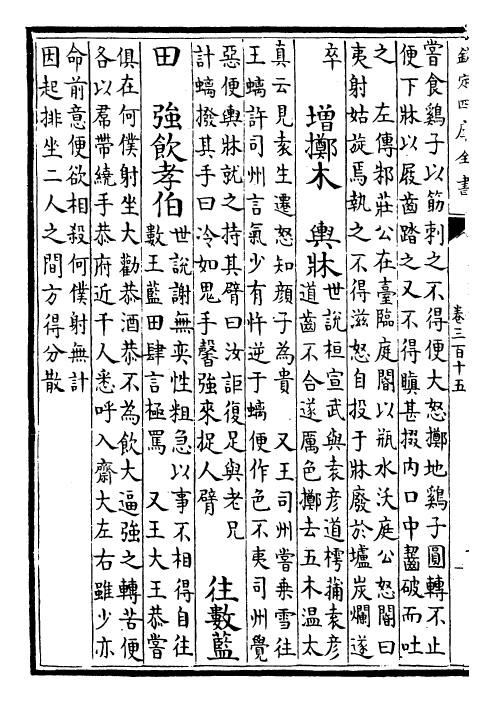 欽定四庫全書
卷三百十五
嘗食鷄子以筋刺之不得便大怒擲地鷄子圓轉不止
便下牀以屐齒踏之又不得瞋甚掇内口中齧破而吐
之　左傳邾莊公在臺臨庭閽以瓶水沃庭公怒閽曰
夷射姑旋焉執之不得滋怒自投于牀廢於壚炭爛遂
卒
增擲木　輿牀
世說桓宣武與袁彦道樗蒱袁彦
道齒不合遂厲色擲去五木温太
真云見袁生遷怒知顔子為貴　又王司州嘗乗雪往
王螭許司州言氣少有忤逆于螭便作色不夷司州覺
惡便輿牀就之持其臂曰汝詎復足與老兄
計螭撥其手曰冷如鬼手馨強來捉人臂
往數藍
田　強飲孝伯
世說謝無奕性粗急以事不相得自往
數王藍田肆言極罵　又王大王恭嘗
俱在何僕射坐大勸恭酒恭不為飲大逼強之轉苦便
各以帬帶繞手恭府近千人悉呼入齋大左右雖少亦
命前意便欲相殺何僕射無計
因起排坐二人之間方得分散